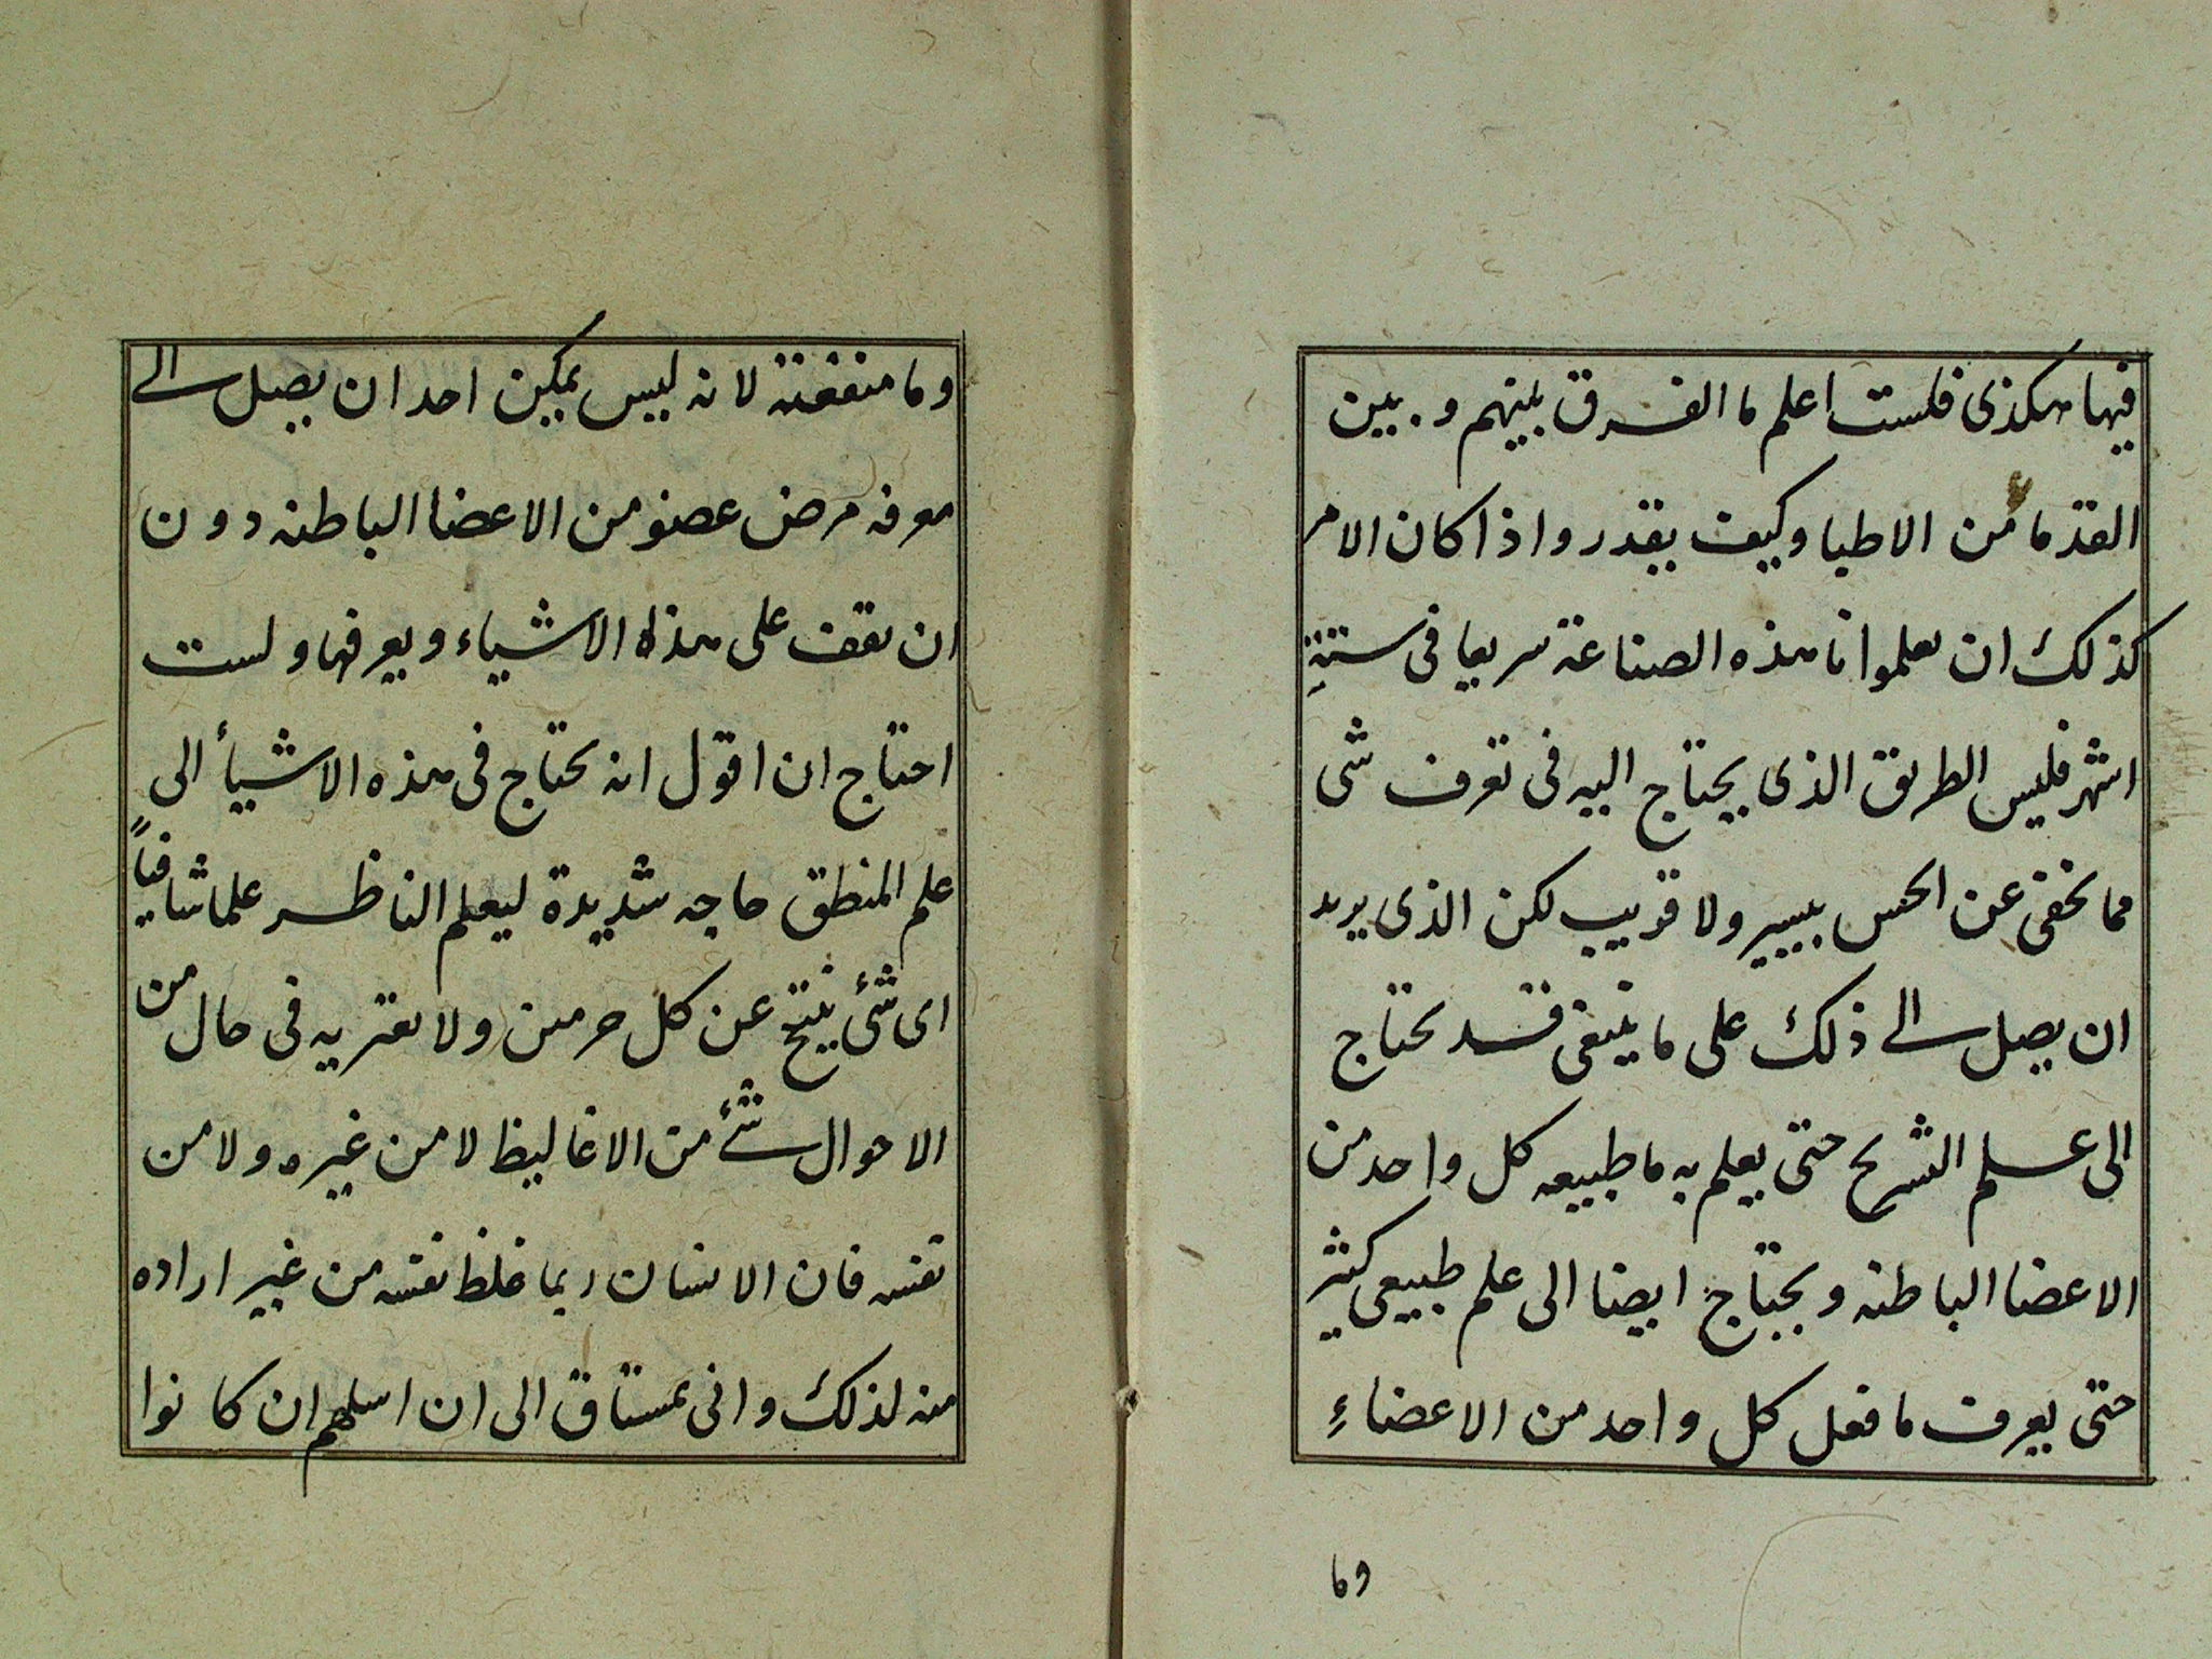 فيها هكذى فلست اعلم ما الفرق بينهم و بين
القدما من الاطبا وكيف يقدر واذا كان الامر
كذلك ان يعلموانا هذه الصناعة سريعا فى ستة
اشهر فليس الطريق الذى يحتاج اليه فى تعرف شى
مما يخفى عن الحس بيسير ولا قريب لكن الذى يريد
ان يصل الى ذلك على ما ينبغى فقد يحتاج
الى علم التشريح حتى يعلم به ما طبيعه كل واحد من
الاعضا الباطنه ويحتاج ايضا الى علم طبيعى كثير
حتى يعرف ما فعل كل واحد من الاعضاء
وما
وما منفعته لانه ليس يمكن احد ان يصل الى
معرفه مرض عضو من الاعضا الباطنه دون
ان يقف على هذه الاشياء ويعرفها ولست
احتاج ان اقول انه يحتاج فى هذه الاشيأ الى
علم المنطق حاجه شديدة ليعلم الناظر علما شافياً
اى شئ ينتج عن كل حرمين ولا يعتريه فى حال من
الاحوال شئ من الاغاليظ لا من غيره ولا من
نفسه فان الانسان ربما غلظ نفسه من غير اراده
منه لذلك وانى لمشتاق الى ان اسلهم ان كانوا